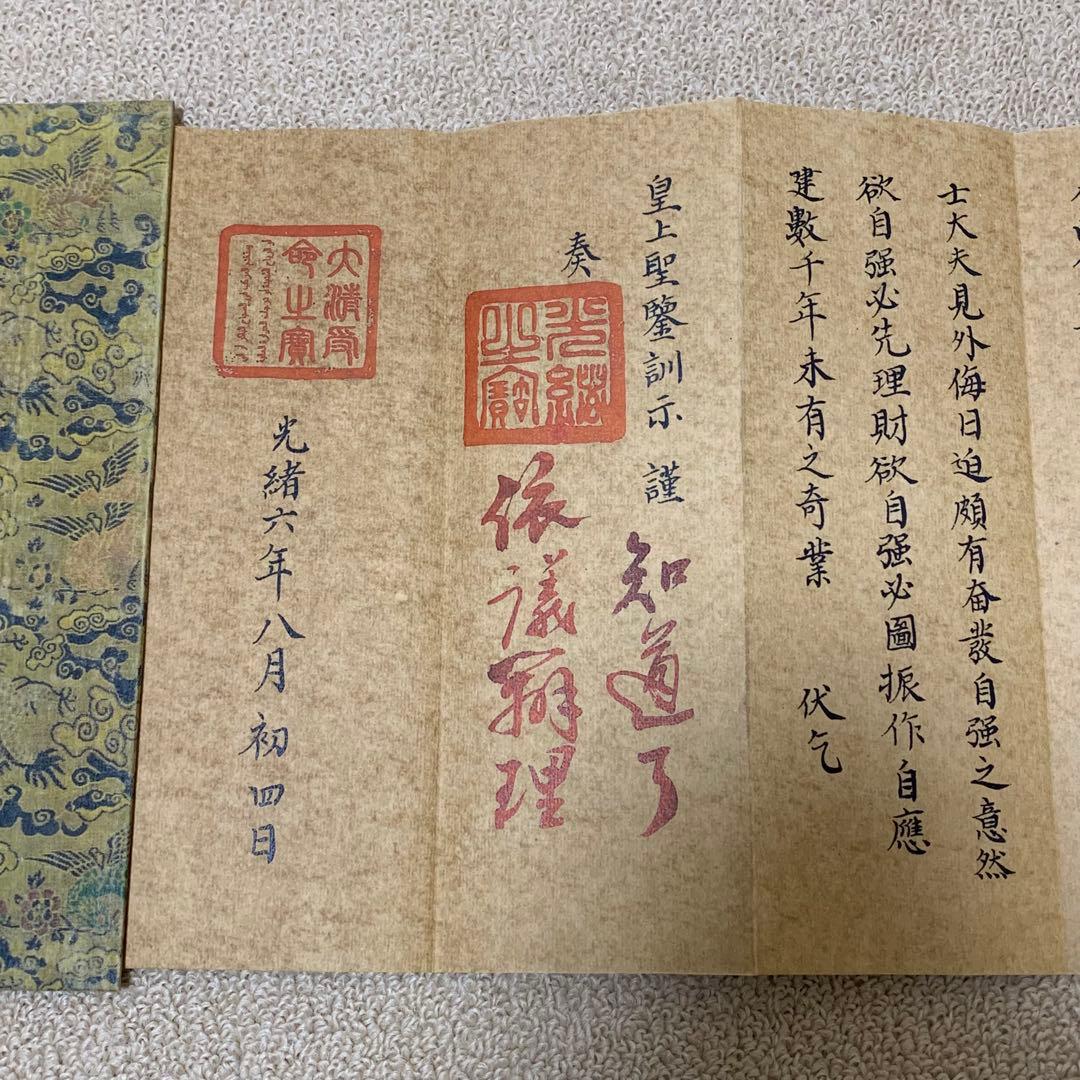 士大夫見外侮日迫頗有奋發自强之意然
欲自强必先理財欲自强必圖振作自應
建數千年未有之奇業 伏乞
皇上聖鑒訓示 謹
奏
知道了
依議辦理
大清受
命之寶
光緒六年八月初四日